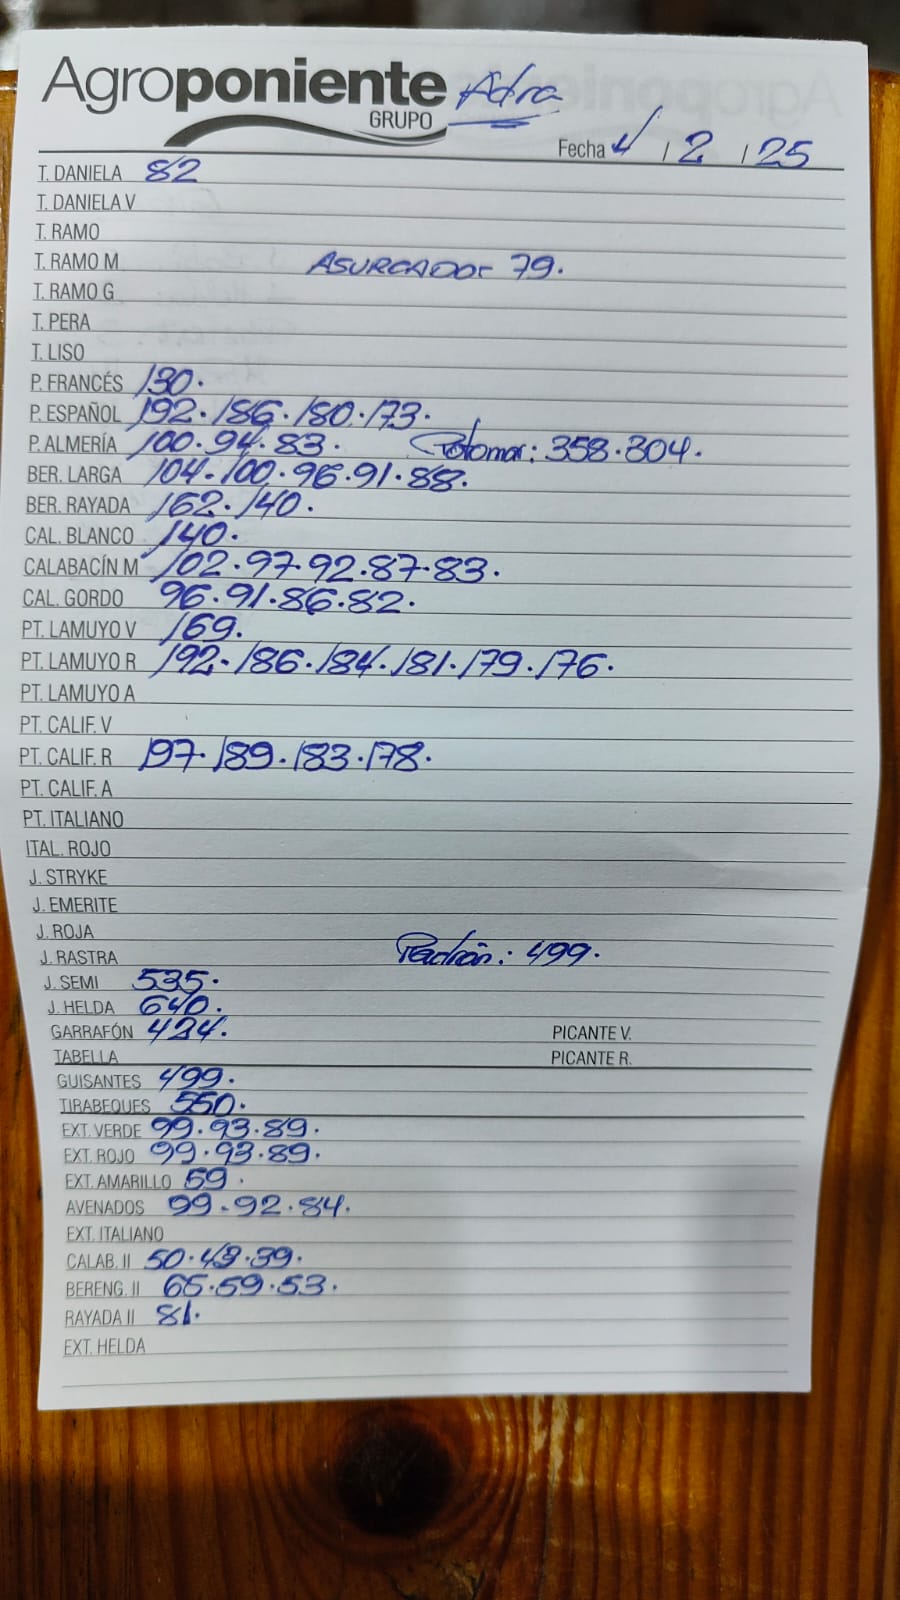 Agroponiente Adra
GRUPO
Fecha 4 / 2 / 25
T. DANIELA 82
T. DANIELA V
T. RAMO
T. RAMO M ASURCADOR 79.
T. RAMO G
T. PERA
T. LISO
P. FRANCÉS 130.
P. ESPAÑOL 192. 186. 180. 173.
P. ALMERÍA 100. 94. 83. Palomar: 358. 304.
BER. LARGA 104. 100. 96. 91. 88.
BER. RAYADA 162. 140.
CAL. BLANCO 140.
CALABACÍN M 102. 97. 92. 87. 83.
CAL. GORDO 96. 91. 86. 82.
PT. LAMUYO V 169.
PT. LAMUYO R 192. 186. 184. 181. 179. 176.
PT. LAMUYO A
PT. CALIF. V
PT. CALIF. R 197. 189. 183. 178.
PT. CALIF. A
PT. ITALIANO
ITAL. ROJO
J. STRYKE
J. EMERITE
J. ROJA
J. RASTRA Padrón: 499.
J. SEMI 535.
J. HELDA 640.
GARRAFÓN 424. PICANTE V.
TABELLA PICANTE R.
GUISANTES 499.
TIRABEQUES 550.
EXT. VERDE 99. 93. 89.
EXT. ROJO 99. 93. 89.
EXT. AMARILLO 59.
AVENADOS 99. 92. 84.
EXT. ITALIANO
CALAB. II 50. 43. 39.
BERENG. II 65. 59. 53.
RAYADA II 81.
EXT. HELDA